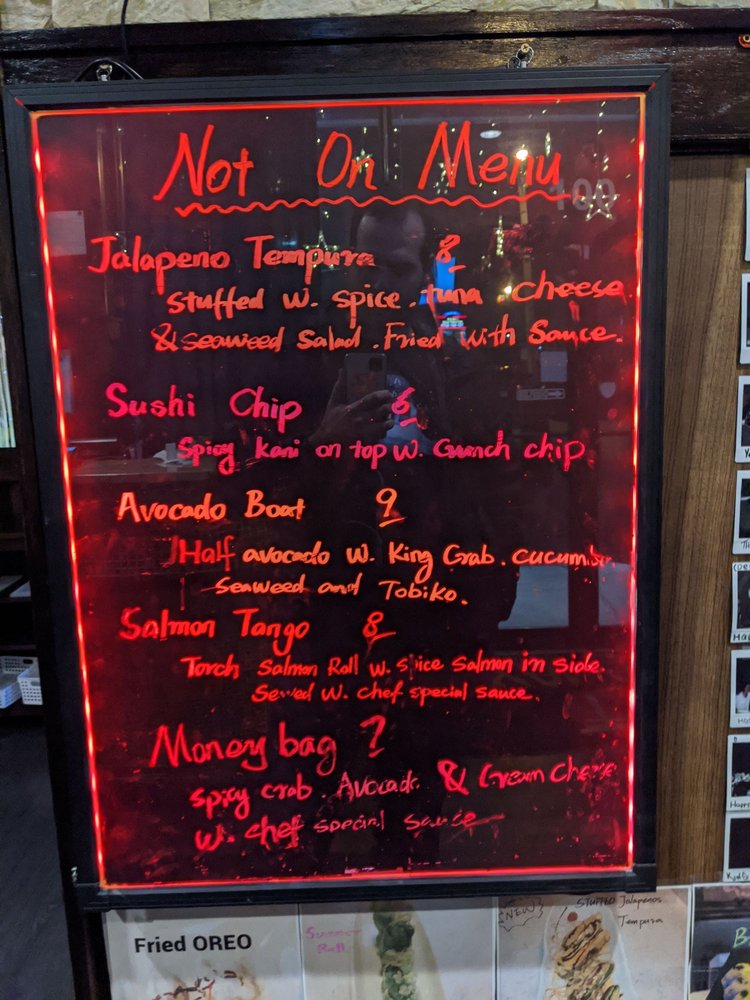 Not On Menu
100
Jalapeno Tempura 8
stuffed w. spice. tuna cheese
& seaweed Salad. Fried with Sauce.
Sushi Chip 6
Spicy kani on top w. Crunch chip
Avocado Boat 9
Half avocado w. King Crab. cucumber
Seaweed and Tobiko.
Salmon Tango 8
Torch Salmon Roll w. spice Salmon in side.
Served w. chef special sauce.
Money bag 7
spicy crab. Avocado & Cream Cheese
w. chef special sauce
Fried OREO
Summer
Roll
NEW
STUFFED Jalapenos
Tempura